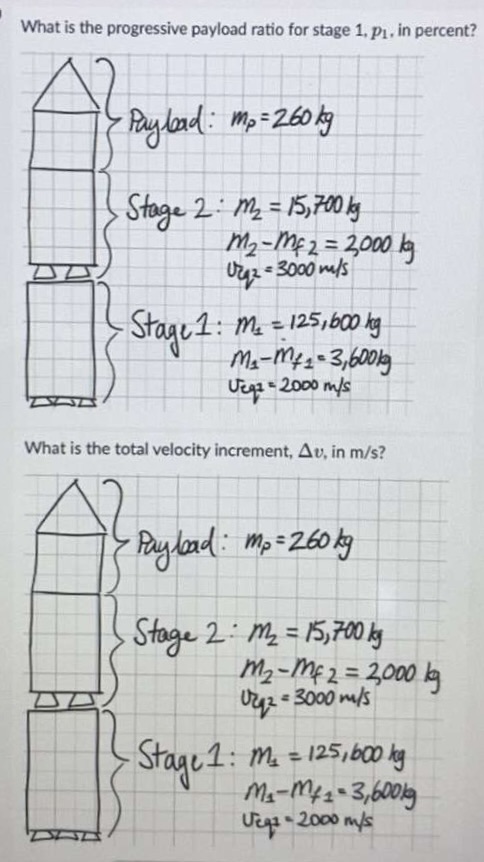 What is the progressive payload ratio for stage 1, p₁, in percent?
Payload: mₚ = 260 kg
Stage 2: m₂ = 15,700 kg
m₂ - m_f2 = 2,000 kg
v_eq2 = 3000 m/s
Stage 1: m₁ = 125,600 kg
m₁ - m_f1 = 3,600 kg
v_eq1 = 2000 m/s
What is the total velocity increment, Δv, in m/s?
Payload: mₚ = 260 kg
Stage 2: m₂ = 15,700 kg
m₂ - m_f2 = 2,000 kg
v_eq2 = 3000 m/s
Stage 1: m₁ = 125,600 kg
m₁ - m_f1 = 3,600 kg
v_eq1 = 2000 m/s